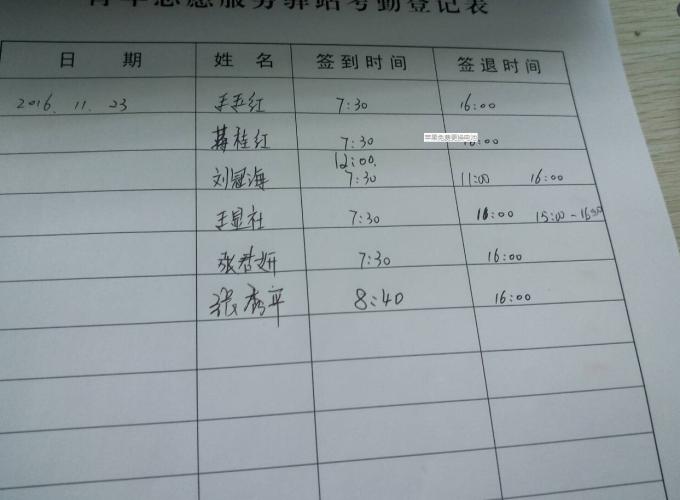 青年志愿服务驿站考勤登记表
日 期 姓 名 签到时间 签退时间
2016. 11. 23 王玉红 7:30 16:00
蒋桂红 7:30 16:00
苹果免费更换电池
12:00.
刘冠海 7:30 11:00 16:00
王显社 7:30 16:00 15:00-16:30
张香妍 7:30 16:00
张秀平 8:40 16:00